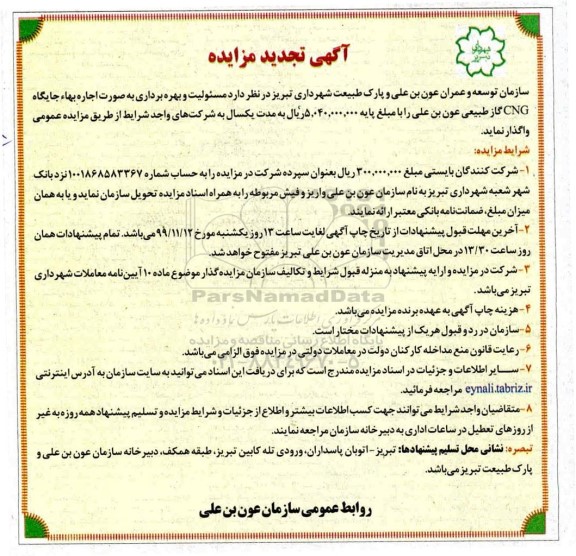 آگهی تجدید مزایده
شهرداری تبریز
سازمان توسعه و عمران عون بن علی و پارک طبیعت شهرداری تبریز در نظر دارد مسئولیت و بهره برداری به صورت اجاره بهاء جایگاه
CNG گاز طبیعی عون بن علی را با مبلغ پایه ۵،۰۴۰،۰۰۰،۰۰۰ ریال به مدت یکسال به شرکت‌های واجد شرایط از طریق مزایده عمومی
واگذار نماید.
شرایط مزایده:
۱- شرکت کنندگان بایستی مبلغ ۳۰۰،۰۰۰،۰۰۰ ریال بعنوان سپرده شرکت در مزایده را به حساب شماره ۱۰۰۱۸۶۸۵۸۳۳۶۷ نزد بانک
شهر شعبه شهرداری تبریز به نام سازمان عون بن علی واریز و فیش مربوطه را به همراه اسناد مزایده تحویل سازمان نماید و یا به همان
میزان مبلغ، ضمانت‌نامه بانکی معتبر ارائه نمایند.
۲- آخرین مهلت قبول پیشنهادات از تاریخ چاپ آگهی لغایت ساعت ۱۳ روز یکشنبه مورخ ۹۹/۱۱/۱۲ می‌باشد. تمام پیشنهادات همان
روز ساعت ۱۳/۳۰ در محل اتاق مدیریت سازمان عون بن علی تبریز مفتوح خواهد شد.
۳- شرکت در مزایده و ارایه پیشنهاد به منزله قبول شرایط و تکالیف سازمان مزایده گذار موضوع ماده ۱۰ آیین‌نامه معاملات شهرداری
تبریز می‌باشد.
۴- هزینه چاپ آگهی به عهده برنده مزایده می‌باشد.
۵- سازمان در رد و قبول هر یک از پیشنهادات مختار است.
۶- رعایت قانون منع مداخله کارکنان دولت در معاملات دولتی در مزایده فوق الزامی می‌باشد.
۷- سایر اطلاعات و جزئیات در اسناد مزایده مندرج است که برای دریافت این اسناد می توانید به سایت سازمان به آدرس اینترنتی
eynali.tabriz.ir مراجعه فرمائید.
۸- متقاضیان واجد شرایط می توانند جهت کسب اطلاعات بیشتر و اطلاع از جزئیات و شرایط مزایده و تسلیم پیشنهاد همه روزه به غیر
از روزهای تعطیل در ساعات اداری به دبیرخانه سازمان مراجعه نمایند.
تبصره: نشانی محل تسلیم پیشنهادها: تبریز - اتوبان پاسداران، ورودی تله کابین تبریز، طبقه همکف، دبیرخانه سازمان عون بن علی و
پارک طبیعت تبریز می‌باشد.
روابط عمومی سازمان عون بن علی
ParsNamadData
پایگاه اطلاع رسانی مناقصه و مزایده